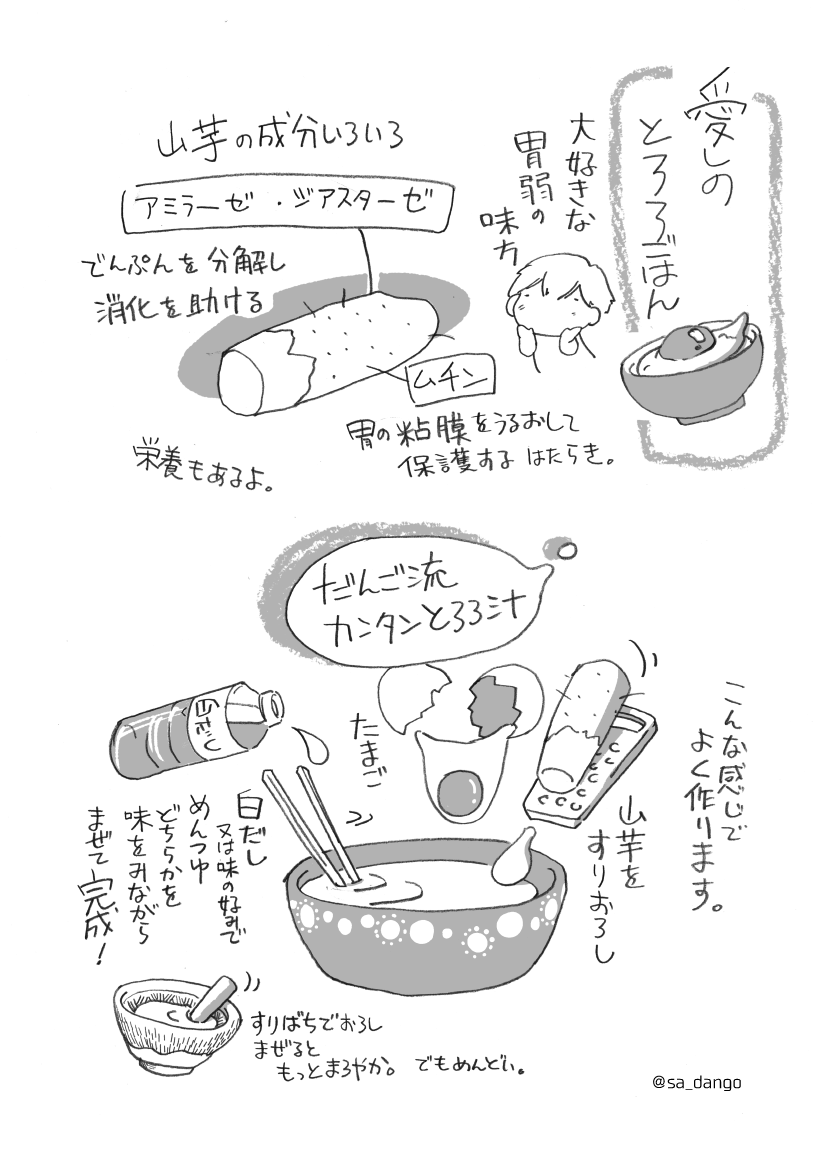 愛しの
とろろごはん
大好きな
胃弱の
味方
山芋の成分いろいろ
アミラーゼ・ジアスターゼ
でんぷんを分解し
消化を助ける
ムチン
胃の粘膜をうるおして
保護するはたらき。
栄養もあるよ。
だんご流
カンタンとろろ汁
こんな感じで
よく作ります。
山芋を
すりおろし
たまご
白だし
白だし
又は味の好みで
めんつゆ
どちらかを
味をみながら
まぜて完成!
すりばちでおろし
まぜると
もっとまろやか。でもめんどい。
@sa_dango